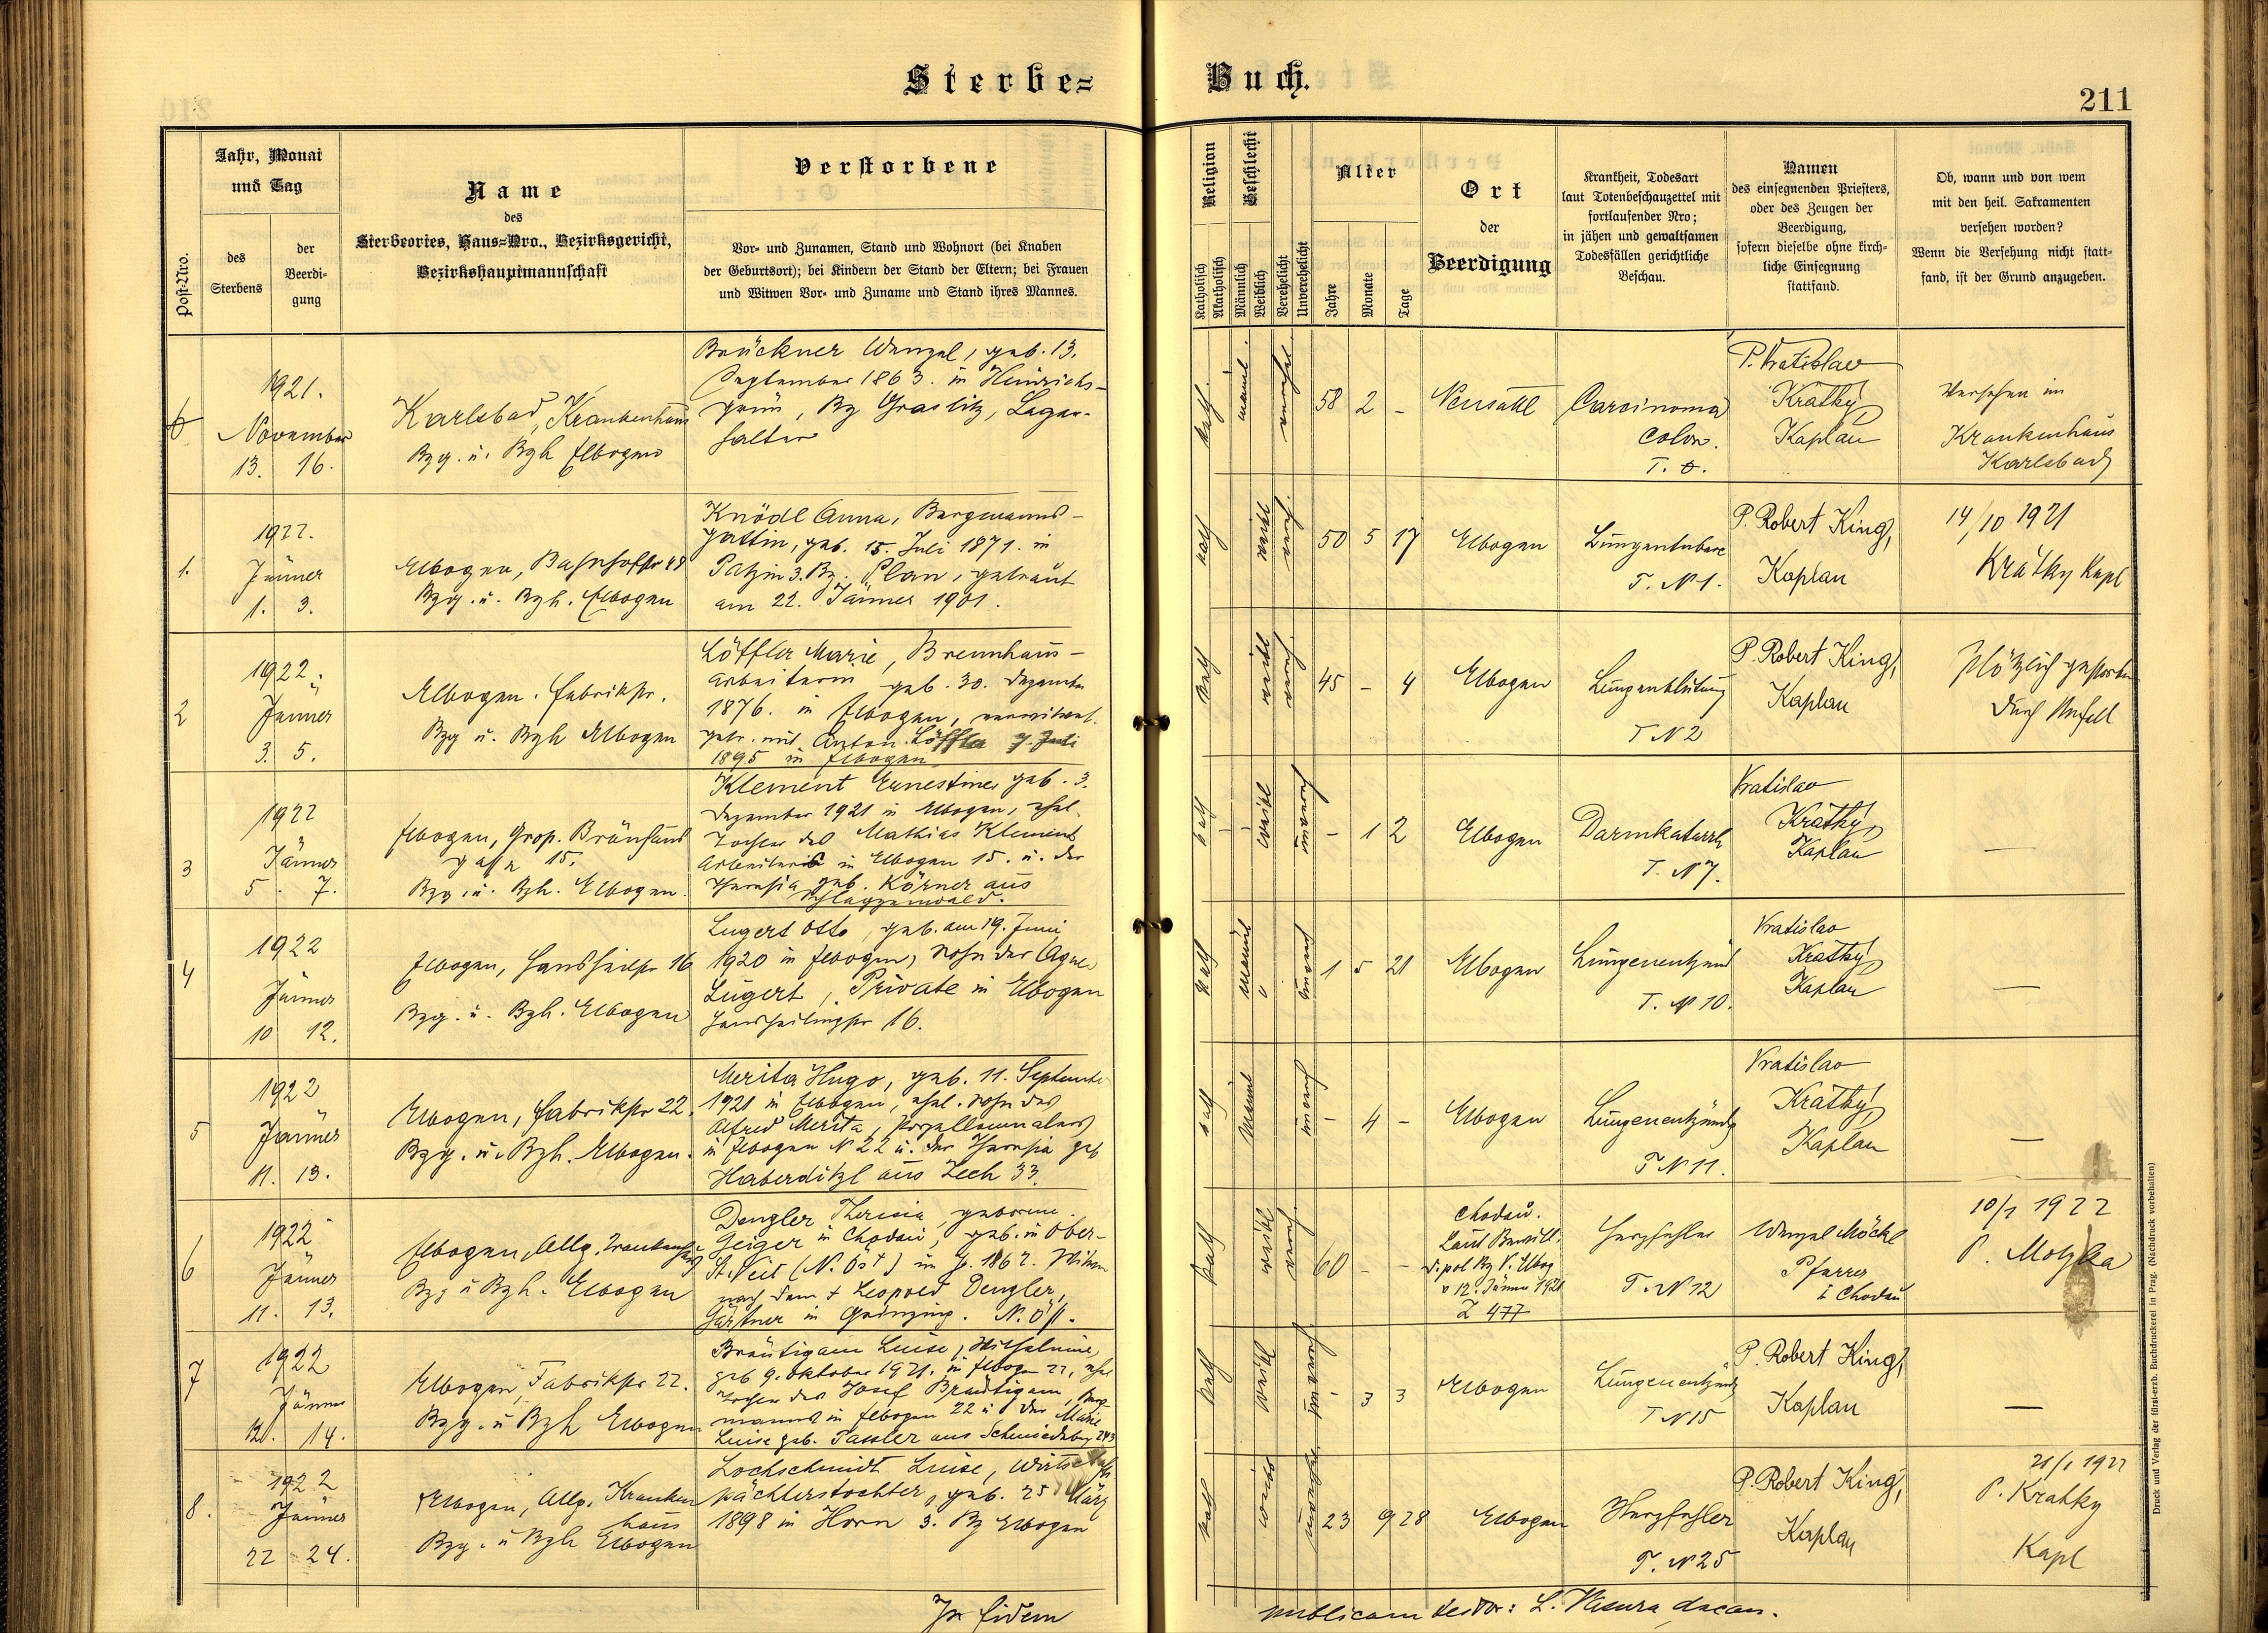 Sterbe=
Buch.
211
Post-Nro.
Jahr, Monat
und Tag
des
Sterbens
der
Beerdi-
gung
Name
des
Sterbeortes, Haus=Nro., Bezirksgericht,
Bezirkshauptmannschaft
Verstorbene
Vor- und Zunamen, Stand und Wohnort (bei Knaben
der Geburtsort); bei Kindern der Stand der Eltern; bei Frauen
und Witwen Vor- und Zuname und Stand ihres Mannes.
Religion
Katholisch
Akatholisch
Geschlecht
Männlich
Weiblich
Verehelicht
Unverehelicht
Alter
Jahre
Monate
Tage
Ort
der
Beerdigung
Krankheit, Todesart
laut Totenbeschauzettel mit
fortlaufender Nro;
in jähen und gewaltsamen
Todesfällen gerichtliche
Beschau.
Namen
des einsegnenden Priesters,
oder des Zeugen der
Beerdigung,
sofern dieselbe ohne kirch-
liche Einsegnung
stattfand.
Ob, wann und von wem
mit den heil. Sakramenten
versehen worden?
Wenn die Versehung nicht statt-
fand, ist der Grund anzugeben.
1921.
November
13. 16.
Karlsbad, Krankenhaus
Bzg. u. Bzh Elbogen
Brückner Wenzel, geb. 13.
September 1863. in Heinrichs-
grün, Bz Graslitz, Lager-
halter
kath. männl. vereh.
58 2 -
Neusattl
Carcinoma
colon.
P. Vratislav
Krátký
Kaplan
Versehen im
Krankenhaus
Karlsbad
1.
1922.
Jänner
1. 3.
Elbogen, Bahnhofstr 48
Bzg. u. Bzh. Elbogen
Knödl Anna, Bergmanns-
gattin, geb. 15. Juli 1871. in
3. Bz. Plan, getraut
am 22. Jänner 1901.
kath weibl vereh.
50 5 17
Elbogen
Lungentuberc
T. N 1.
P. Robert King,
Kaplan
14/10 1921
Krátky Kapl
2
1922
Jänner
3. 5.
Elbogen. Fabrikstr.
Bzg u. Bzh Elbogen
Löffler Marie, Brennhaus-
arbeiterin geb. 30. Dezember
1876. in Elbogen, verwitwet.
getr. mit Anton Löffler 7. Juli
1895 in Elbogen
kath weibl vereh.
45 - 4
Elbogen
Lungenblutung
T N 2
P. Robert King,
Kaplan
Plötzlich gestorben
durch Unfall
3
1922
Jänner
5. 7.
Elbogen, Grop. Bräuhaus
gasse 15.
Bzg. u. Bzh. Elbogen.
Klement Ernestine geb. 3.
Dezember 1921 in Elbogen, ehel.
Tochter des Mathias Klement
Arbeiters in Elbogen 15. u. der
Theresia geb. Körner aus
Schlaggenwald.
kath weibl unvereh
- 1 2
Elbogen
Darmkatarrh
T. N 7.
Vratislav
Krátký
Kaplan
—
4
1922
Jänner
10 12.
Elbogen, Hansheilstr 16
Bzg. u. Bzh. Elbogen
Lugert Otto, geb. am 19. Juni
1920 in Elbogen, Sohn der Agnes
Lugert, Private in Elbogen
Hansheilingstr 16.
kath männl unvereh
1 5 21
Elbogen
Lungenentzünd
T. N 10.
Vratislav
Krátký
Kaplan
—
5
1922
Jänner
11. 13.
Elbogen, Fabrikstr 22.
Bzg. u. Bzh. Elbogen.
Merita Hugo, geb. 11. September
1921 in Elbogen, ehel. Sohn des
Alfred Merita, Porzellanmalers
in Elbogen N 22 u. der Theresia geb
Haberditzl aus Zech 33.
kath männl unvereh
- 4 -
Elbogen
Lungenentzündg
T N 11.
Vratislav
Krátký
Kaplan
—
6
1922
Jänner
11. 13.
Elbogen, Allg. Krankenhaus
Bzg u Bzh. Elbogen
Dengler Theresia, geborene
Geiger in Chodau, geb. in Ober-
St. Veit (N. Öst) im J. 1862. Witwe
nach dem † Leopold Dengler,
Gärtner in Grinzing. N. Öst.
kath weibl vereh.
60 - -
Chodau.
Laut Bewill.
d. pol Bz V. Elbog
v 12. Jänner 1921
Z 477
Herzfehler
T. N 12
Wenzel Möckl
Pfarrer
in Chodau
10/1 1922
P. Motzka
7
1922
Jänner
12. 14.
Elbogen, Fabrikstr 22.
Bzg. u Bzh Elbogen
Bräutigam Luise, Wilhelmine
geb 9. Oktober 1921. in Elbogen 22, ehel
Tochter des Josef Bräutigam, Berg-
manns in Elbogen 22 u der Marie
Luise geb. Tassler aus Schmiedeberg 243
kath weibl unvereh
- 3 3
Elbogen
Lungenentzünd
T N 15
P. Robert King,
Kaplan
—
8.
1922
Jänner
22 24.
Elbogen, Allg. Kranken
haus
Bzg. u Bzh Elbogen
Lochschmidt Luise, Wirtschafts
pächterstochter, geb. 25 März
1898 in Horn 3. Bz Elbogen
kath weibl unvereh
23 9 28
Elbogen
Herzfehler
T. N 25
P. Robert King,
Kaplan
21/1 1922
P. Krátky
Kapl
In fidem
publicam
Druck und Verlag der fürst-erzb. Buchdruckerei in Prag. (Nachdruck vorbehalten)